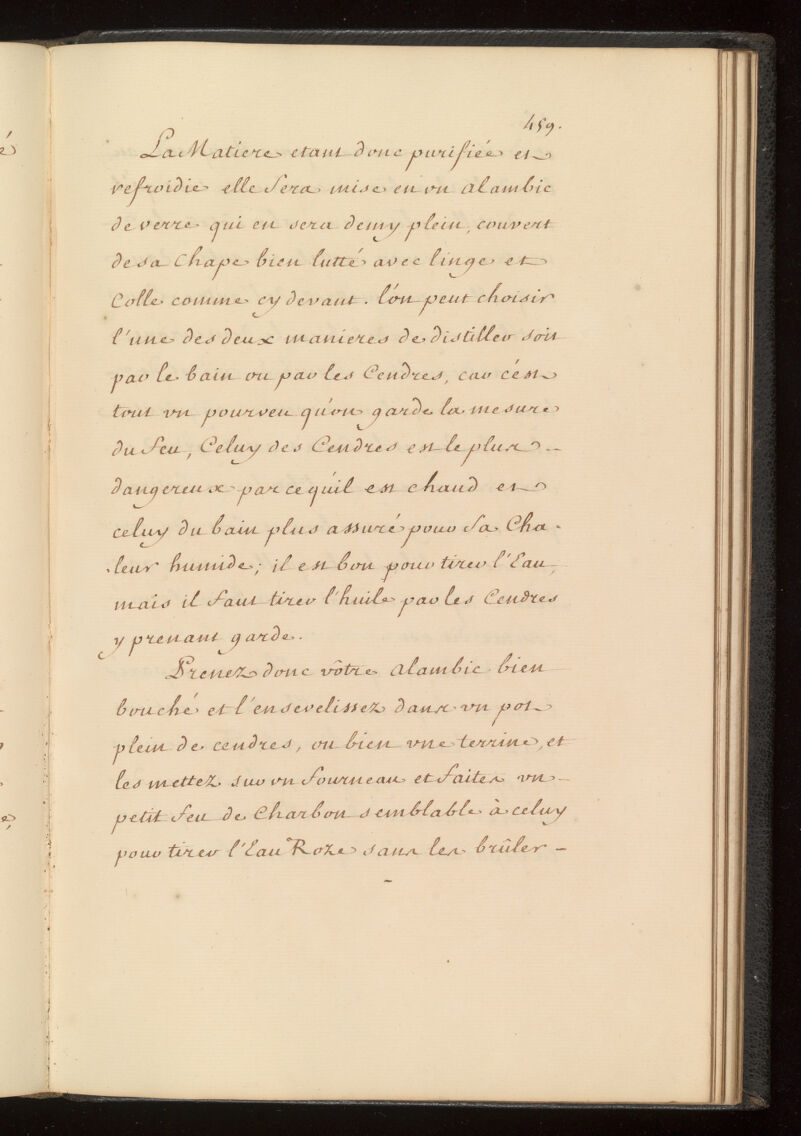 459.
La Matiere etant donc purifiée et
refroidie elle sera mise en vn alambic
de verre qui en sera demy plein, couvert
de sa Chape bien lutté avec linge et
Colle comme cy devant. l'on peut choisir
l'une des deux manieres de distiller soit
par le bain ou par les Cendres, car c'est
tout vn pourveu qu'on garde la mesure
du feu, Celuy des Cendres est le plus –
dangereux parce qu'il est chaud et
celuy du bain plus assuré pour sa Cha-
-leur humide; il est bon pour tirer l'Eau,
mais il faut tirer l'huile par les Cendres
y prenant garde.
Prenez donc vôtre alambic bien
bouché et l'ensevelissez dans vn pot
plein de cendres, ou bien vne terrine, et
les mettez sur vn fourneau et faites vn –
petit feu de Charbon semblable à celuy
pour tirer l'Eau Roze sans les brûler –
é